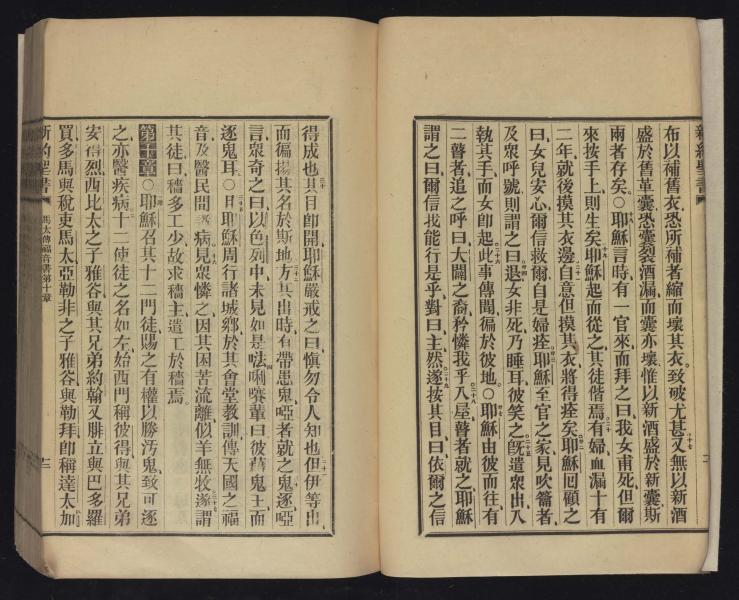 布以補舊衣恐所補者縮而壞其衣致破尤甚又無以新酒
盛於舊革囊恐囊裂酒漏而囊亦壞惟以新酒盛於新囊斯
兩者存矣○耶穌言時有一官來而拜之曰我女甫死但爾
來按手上則生矣耶穌起而從之其徒偕焉有婦血漏十有
二年就後摸其衣邊自意但摸其衣將得痊矣耶穌回顧之
曰女兒安心爾信救爾自是婦痊耶穌至官之家見吹籥者
及衆呼號則謂之曰退女非死乃睡耳彼笑之旣遣衆出入
執其手而女卽起此事傳聞徧於彼地○耶穌由彼而往有
二瞽者追之呼曰大闢之裔矜憐我乎入屋瞽者就之耶穌
謂之曰爾信我能行是乎對曰主然遂按其目曰依爾之信
新約聖書
得成也其目卽開耶穌嚴戒之曰愼勿令人知也但伊等出
而徧揚其名於斯地方其出時有帶患鬼啞者就之鬼逐啞
言衆奇之曰以色列中未見如是𠵽唎賽輩曰彼藉鬼王而
逐鬼耳○且耶穌周行諸城鄕於其會堂教訓傳天國之福
音及醫民間病見衆憐之因其困苦流離似羊無牧遂謂
其徒曰穡多工少故求穡主遣工於穡焉
第十章○耶穌召其十二門徒賜之有權以勝汚鬼致可逐
之亦醫疾病十二使徒之名如左始西門稱彼得與其兄弟
安得烈西比太之子雅谷與其兄弟約翰又腓立與巴多羅
買多馬與稅吏馬太亞勒非之子雅谷與勒拜卽稱達太加
新約聖書 馬太傳福音書第十章 十二